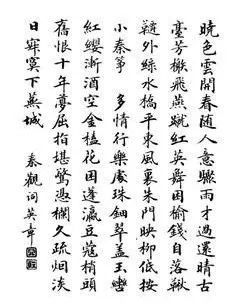 曉色雲開春随人意驟雨才過還晴古
臺芳榭飛燕蹴紅英舞困榆錢自落鞦
韆外綠水橋平東風裏朱門映柳低按
小秦箏 多情行樂處珠鈿翠盖玉轡
紅纓漸酒空金榼花困蓬瀛豆蔻梢頭
舊恨十年夢屈指堪驚憑欄久疏烟淡
日寂寞下蕪城 秦觀词英章